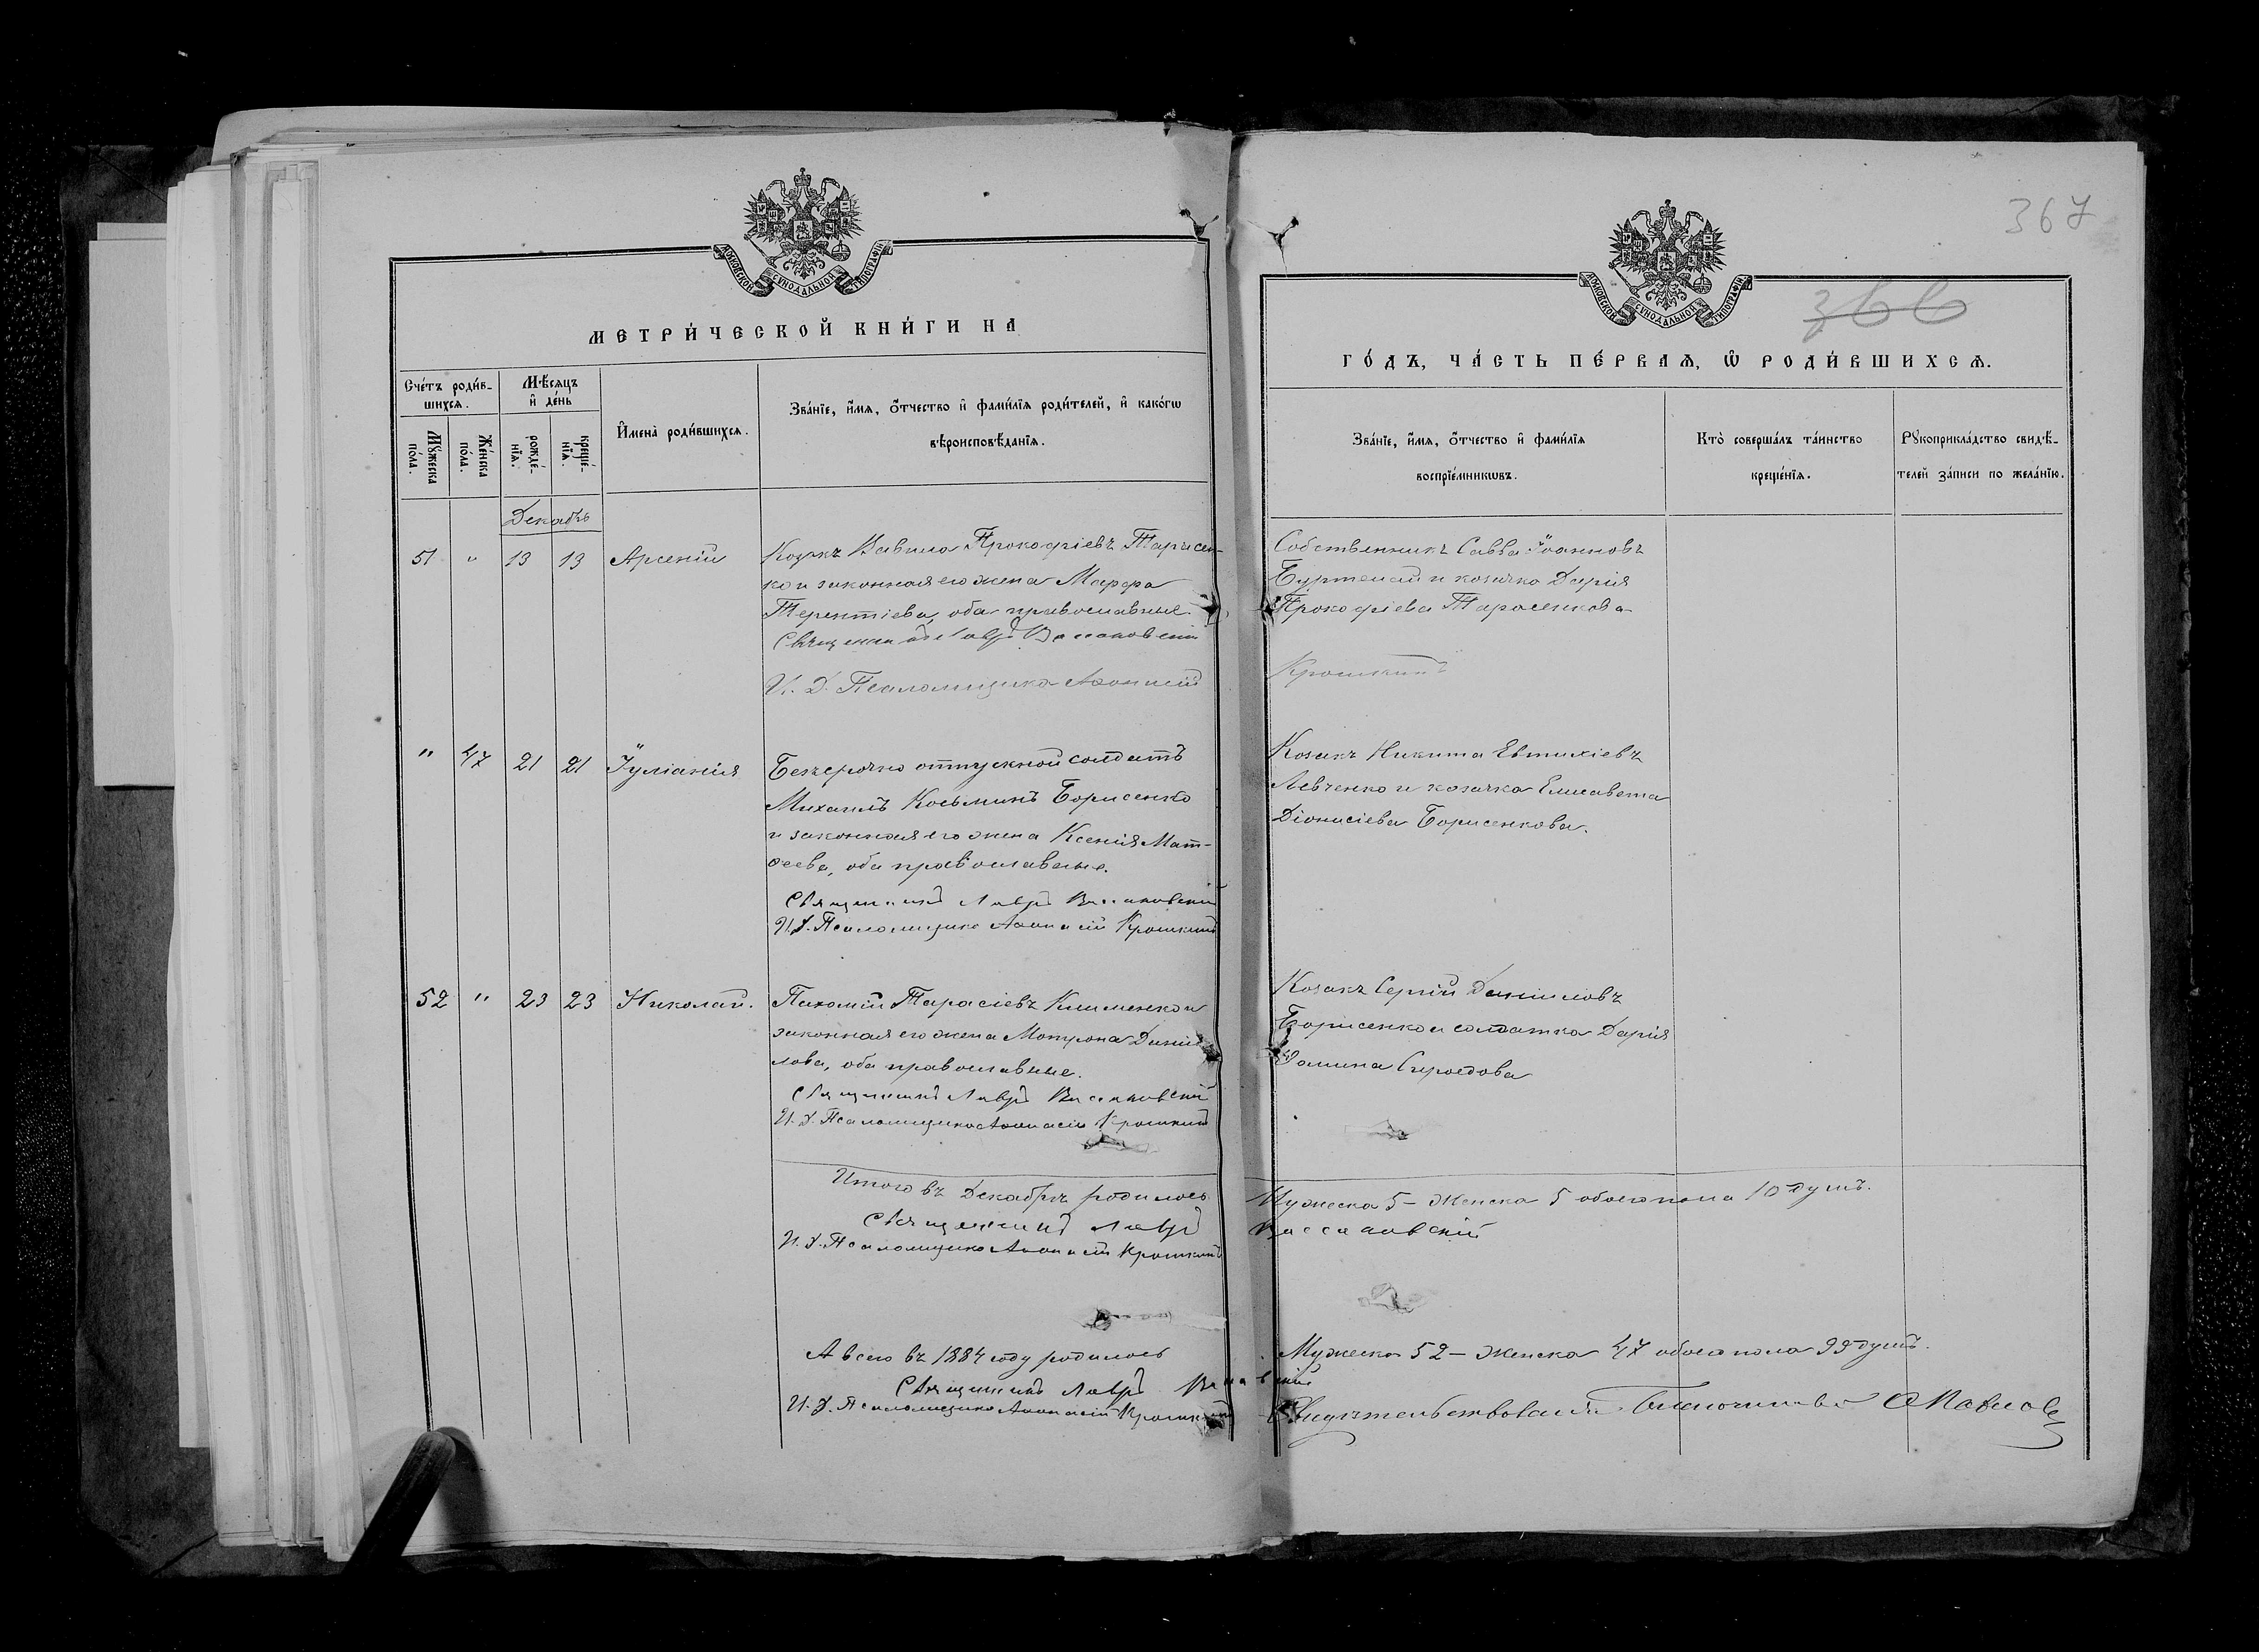 367
366
МОСКОВСКОЙ СѴНОДАЛЬНОЙ ТИПОГРАФІИ
МОСКОВСКОЙ СѴНОДАЛЬНОЙ ТИПОГРАФІИ.
МЕТРИ́ЧЕСКОЙ КНИ́ГИ НА
ГО́ДЪ, ЧА́СТЬ ПЕ́РВАѦ, Ѡ҆ РОДИ́ВШИХСѦ.
Сче́тъ роди́в-
шихсѧ.
Мѣ́сѧцъ
и҆ де́нь
Мꙋ́жеска
по́ла.
Же́нска
по́ла.
рожде́-
нїѧ.
креще́-
нїѧ.
И҆мена̀ роди́вшихсѧ.
Зва́нїе, и҆́мѧ, ѻ҆́тчество и҆ фамѝлїѧ роди́телей, и҆ како́гѡ
вѣроисповѣ́данїѧ.
Зва́нїе, и҆́мѧ, ѻ҆́тчество и҆ фами́лїѧ
воспрїе́мникѡвъ.
Кто̀ соверша́лъ та́инство
креще́нїѧ.
Рꙋкоприкла́дство свидѣ́-
телей за́писи по жела́нїю.
Декабрь
51 " 13 13 Арсеній
Козакъ Вавила Прокофіевъ Тарасен-
ко и законная его жена Марфа
Терентіева, оба православные.
Священникъ Лавръ
И. Д. Псаломщика Аѳанасій
Собственникъ Савва Іоанновъ
и козачка Дарія
Прокофіева Тарасенкова
Крошкинъ
" 47 21 21 Іуліанія
Безсрочно отпускной солдатъ
Михаилъ Косьминъ Борисенко
и законная его жена Ксенія Мат-
ѳеева, оба православные.
Священникъ Лавръ
И. Д. Псаломщика Аѳанасій Крошкинъ
Козакъ Никита Евтихіевъ
Левченко и козачка Елисавета
Діонисіева Борисенкова.
52 " 23 23 Николай.
Пахомій Тарасіевъ Клименко и
законная его жена Мотрона Дани-
лова, оба православные.
Священникъ Лавръ
И. Д. Псаломщика Аѳанасій Крошкинъ
Козакъ Сергій Даниловъ
Борисенко и солдатка Дарія
Ѳомина Сыроедова
Итого въ Декабрѣ родилось
Мужеска 5 – Женска 5 обоего пола 10 душъ.
Священникъ Лавръ
И. Д. Псаломщика Аѳанасій Крошкинъ
А всего въ 1884 году родилось
Мужеска 52 – Женска 47 обоего пола 99 душъ.
Священникъ Лавръ
И. Д. Псаломщика Аѳанасій Крошкинъ
Свидѣтельствовалъ Благочинный Павловъ